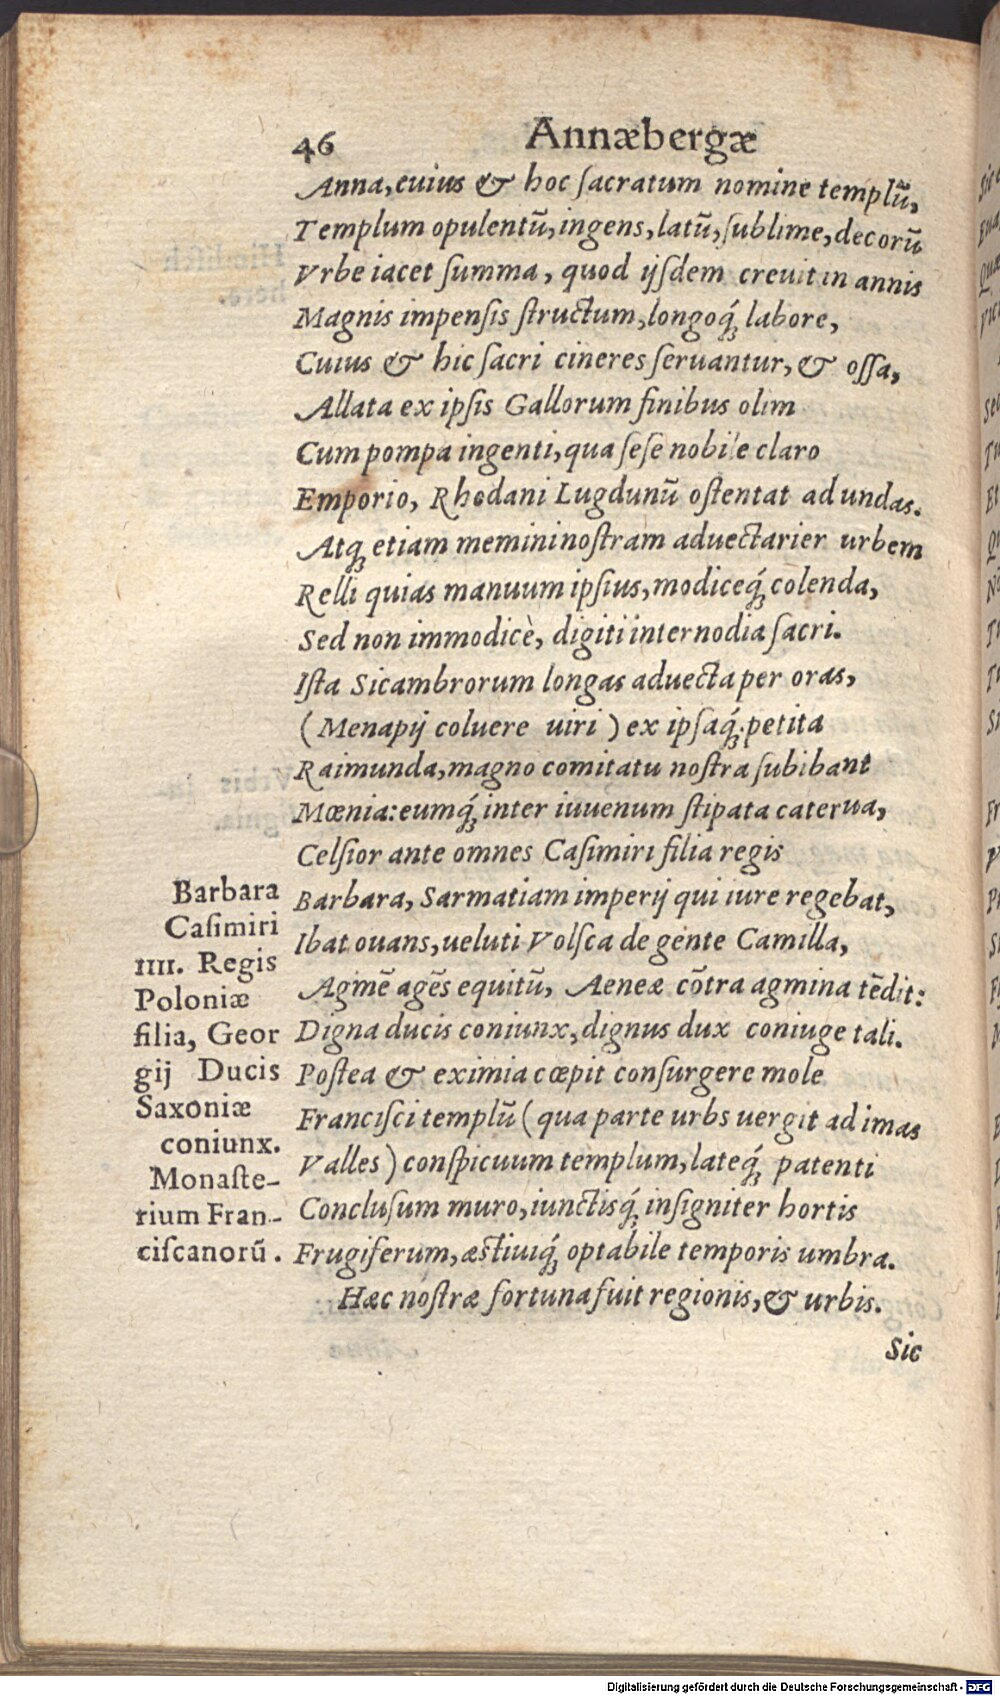 46 Annæbergæ
Anna, cuius & hoc sacratum nomine templũ,
Templum opulentũ, ingens, latũ, sublime, decorũ
Vrbe iacet summa, quod ijsdem crevit in annis
Magnis impensis structum, longoq́; labore,
Cuius & hic sacri cineres seruantur, & ossa,
Allata ex ipsis Gallorum finibus olim
Cum pompa ingenti, qua sese nobile claro
Emporio, Rhodani Lugdunũ ostentat ad undas.
Atq; etiam memini nostram aduectarier urbem
Relliquias manuum ipsius, modiceq́; colenda,
Sed non immodicè, digiti internodia sacri.
Ista Sicambrorum longas aduecta per oras,
(Menapij coluere uiri) ex ipsaq́; petita
Raimunda, magno comitatu nostra subibant
Mœnia: eumq́; inter iuuenum stipata caterua,
Celsior ante omnes Casimiri filia regis
Barbara, Sarmatiam imperij qui iure regebat,
Ibat ouans, ueluti Volsca de gente Camilla,
Agmẽ agẽs equitũ, Aeneæ cõtra agmina tẽdit:
Digna ducis coniunx, dignus dux coniuge tali.
Postea & eximia cœpit consurgere mole
Francisci templũ (qua parte urbs uergit ad imas
Valles) conspicuum templum, lateq́; patenti
Conclusum muro, iunctisq́; insigniter hortis
Frugiferum, æstiuiq́; optabile temporis umbra.
Hæc nostræ fortuna fuit regionis, & urbis.
Sic
Barbara
Casimiri
IIII. Regis
Poloniæ
filia, Geor
gij Ducis
Saxoniæ
coniunx.
Monaste-
rium Fran-
ciscanorũ.
Digitalisierung gefördert durch die Deutsche Forschungsgemeinschaft - DFG